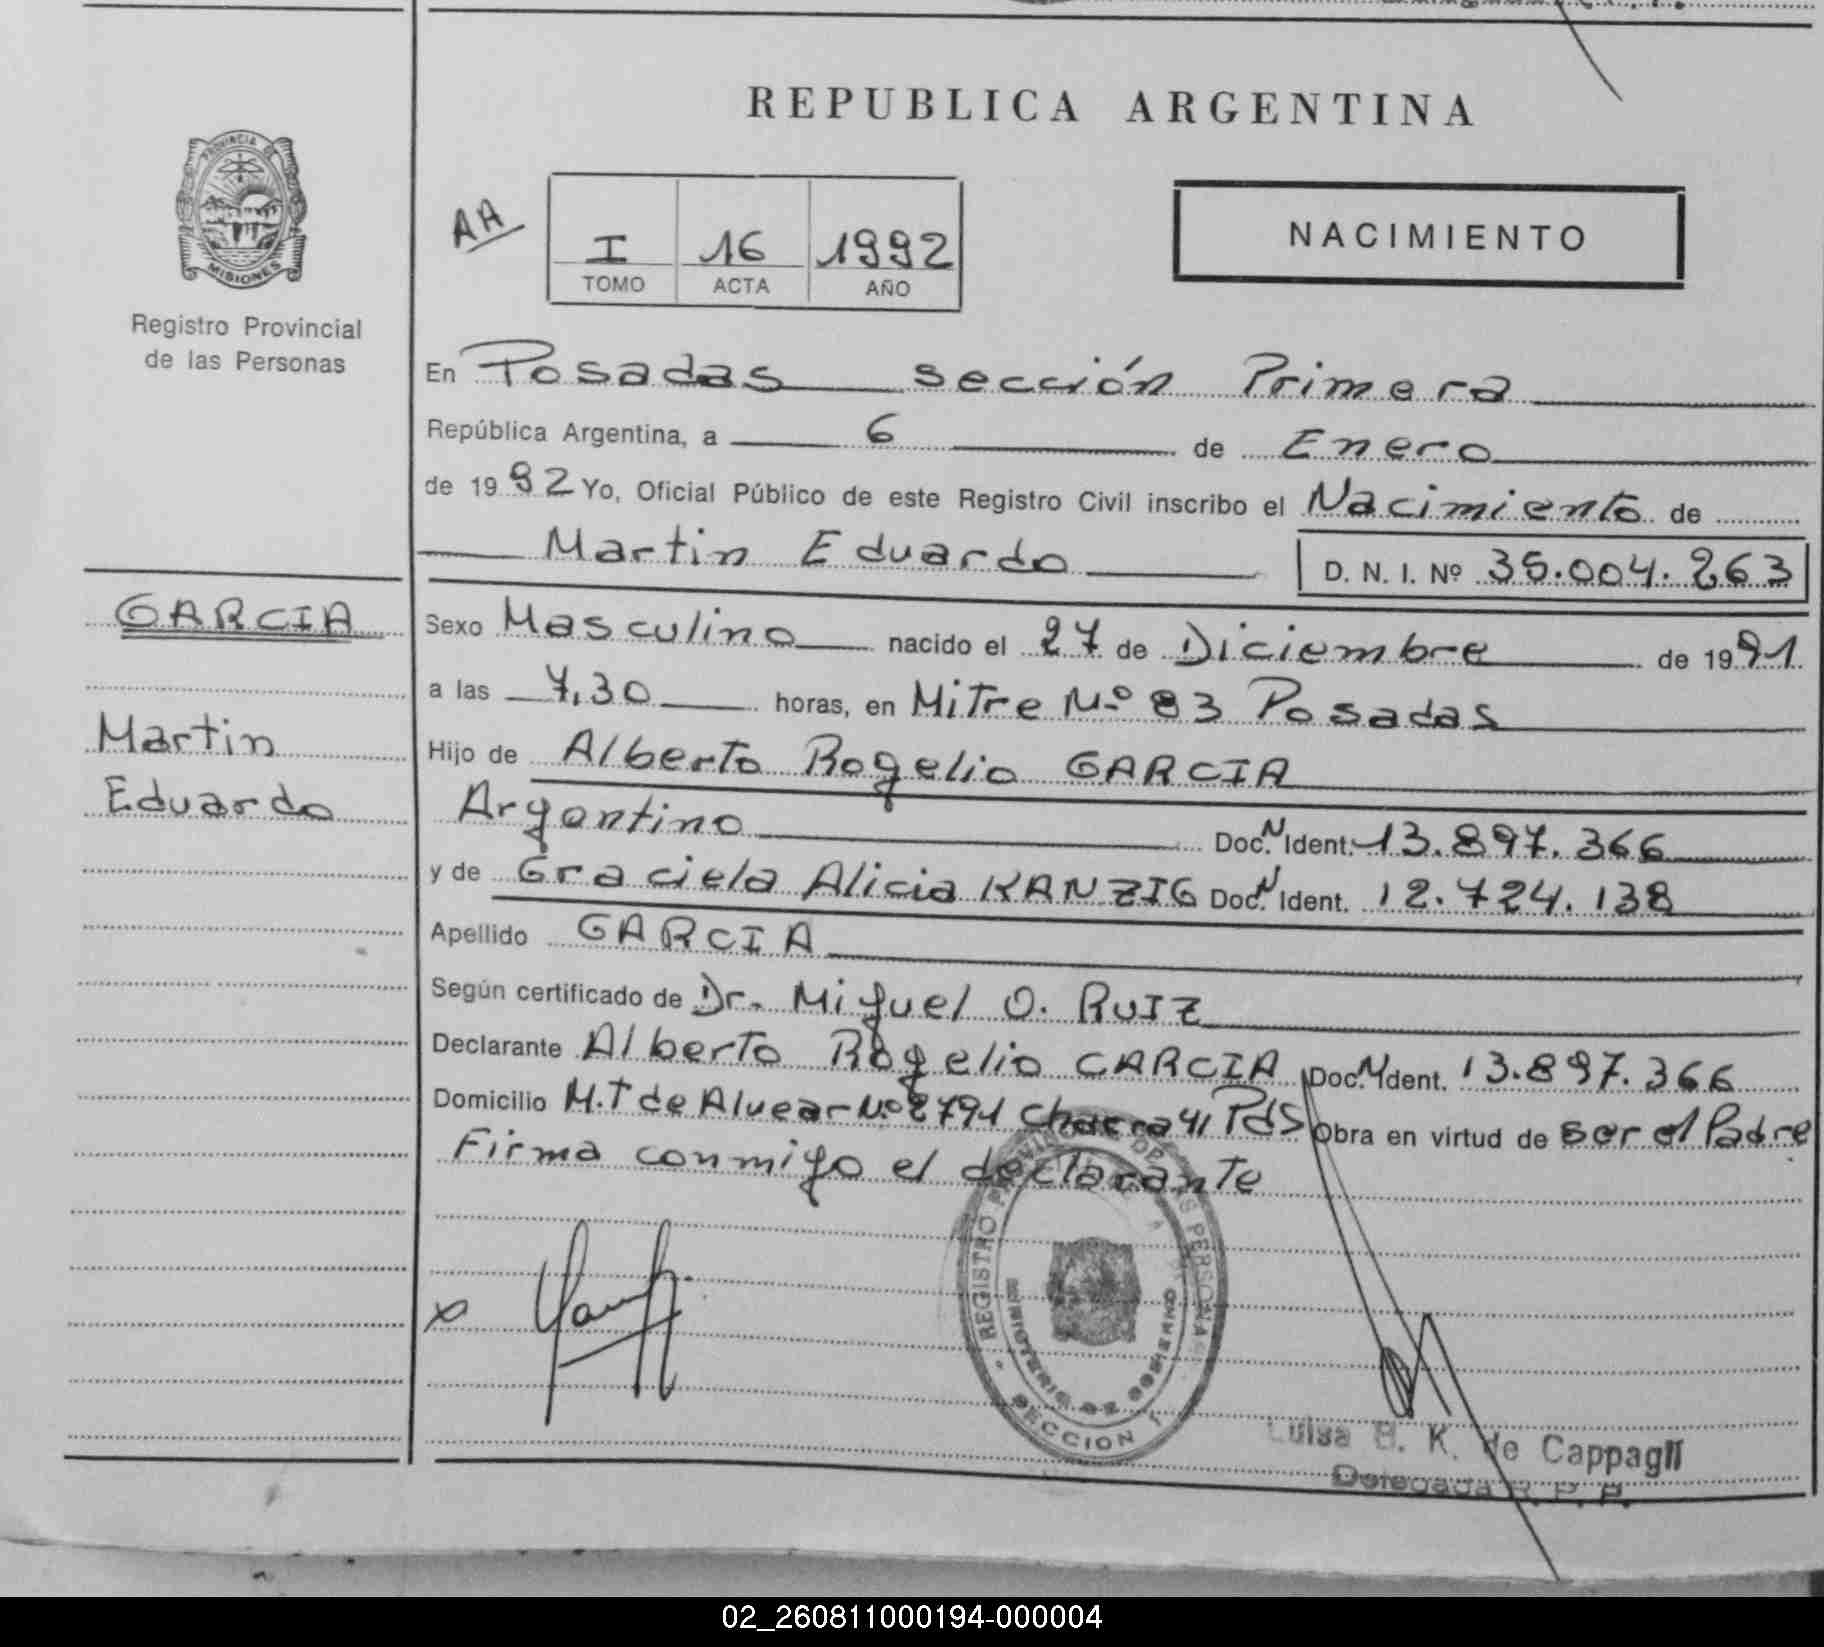 REPUBLICA ARGENTINA
PROVINCIA DE
MISIONES
Registro Provincial
de las Personas
AA
I 16 1992
TOMO ACTA AÑO
NACIMIENTO
En Posadas sección Primera
República Argentina, a 6 de Enero
de 1992 Yo, Oficial Público de este Registro Civil inscribo el Nacimiento de
Martin Eduardo D. N. I. Nº 35.004.263
GARCIA
Martin
Eduardo
Sexo Masculino nacido el 27 de Diciembre de 1991
a las 7,30 horas, en Mitre Nº 83 Posadas
Hijo de Alberto Rogelio GARCIA
Argentino Doc. N Ident. 13.897.366
y de Graciela Alicia KANZIG Doc. N Ident. 12.724.138
Apellido GARCIA
Según certificado de Dr. Miguel O. RUIZ
Declarante Alberto Rogelio GARCIA Doc. N Ident. 13.897.366
Domicilio M.T de Alvear Nº 2791 Chacra 41 Pds Obra en virtud de ser el Padre
Firma conmigo el declarante
x
REGISTRO PROVINCIAL DE LAS PERSONAS
MINISTERIO DE GOBIERNO
SECCION 1
Luisa B. K. de Cappagli
Delegada R. P. P.
02_260811000194-000004